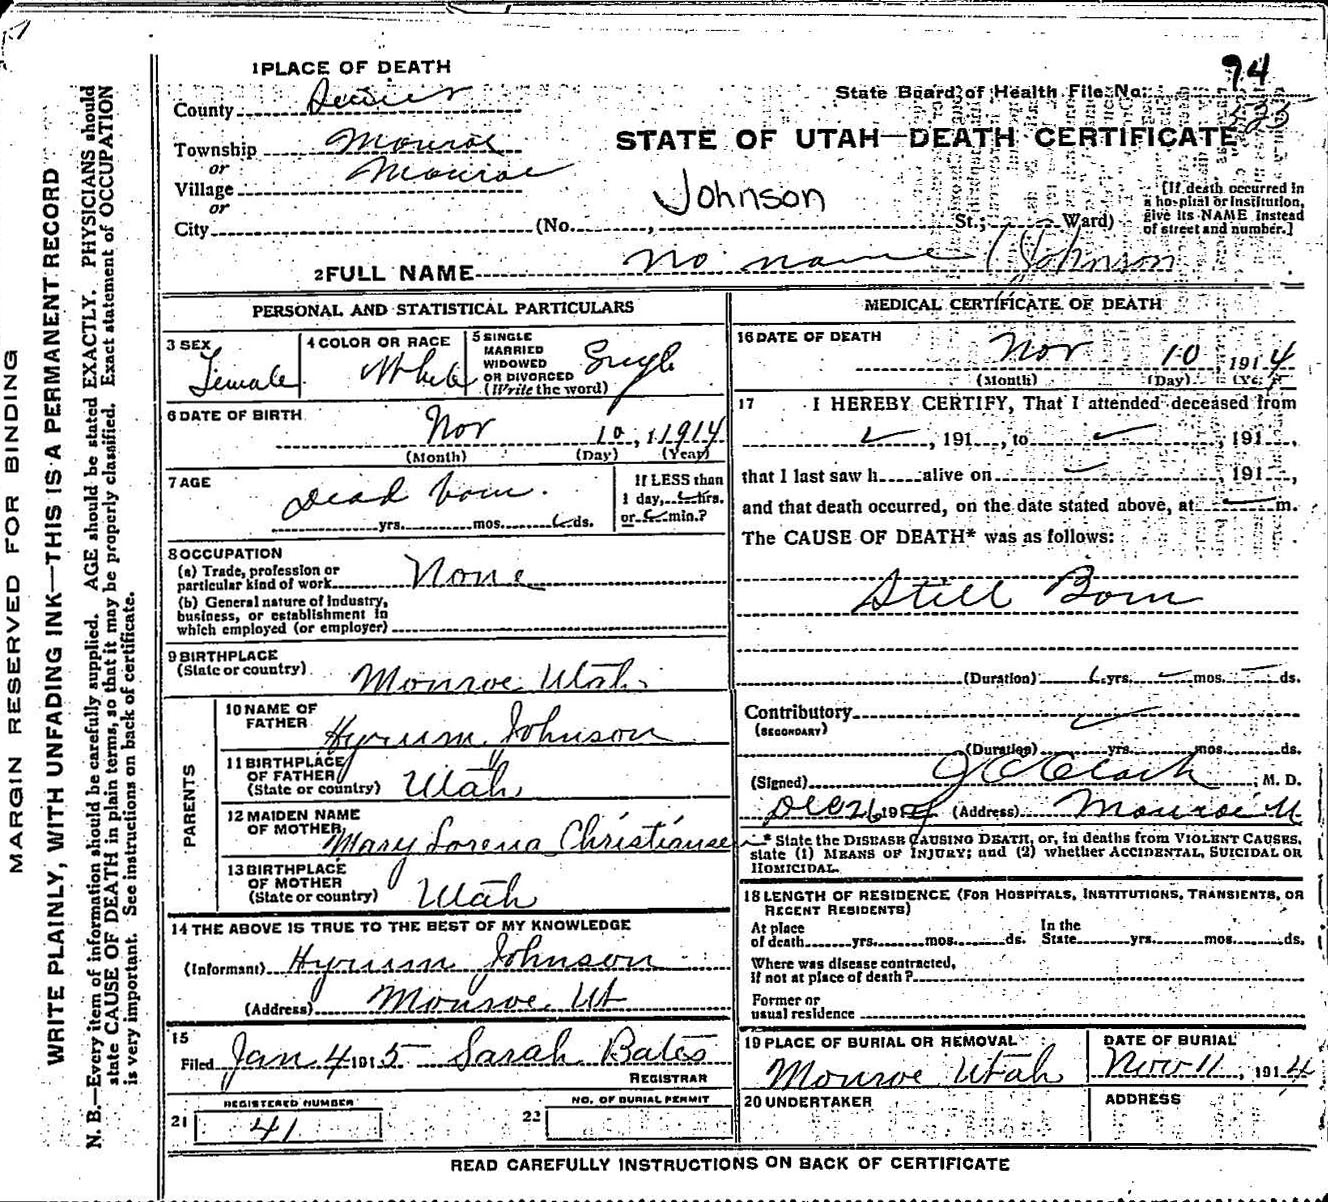 94
1 PLACE OF DEATH
County Sevier
State Board of Health File No. 535
Township Monroe
STATE OF UTAH—DEATH CERTIFICATE
or
Village Monroe
or
City (No. , Johnson St.; Ward)
[If death occurred in
a hospital or institution,
give its NAME instead
of street and number.]
2 FULL NAME No name (Johnson
PERSONAL AND STATISTICAL PARTICULARS
3 SEX
Female
4 COLOR OR RACE
White
5 SINGLE
MARRIED
WIDOWED
OR DIVORCED
(Write the word)
Single
6 DATE OF BIRTH
Nov 10, 1914
(Month) (Day) (Year)
7 AGE
Dead born.
yrs. mos. ds.
If LESS than
1 day, hrs.
or min.?
8 OCCUPATION
(a) Trade, profession or
particular kind of work None
(b) General nature of industry,
business, or establishment in
which employed (or employer)
9 BIRTHPLACE
(State or country) Monroe Utah
PARENTS
10 NAME OF
FATHER Hyrum Johnson
11 BIRTHPLACE
OF FATHER
(State or country) Utah
12 MAIDEN NAME
OF MOTHER Mary Lorena Christiansen
13 BIRTHPLACE
OF MOTHER
(State or country) Utah
14 THE ABOVE IS TRUE TO THE BEST OF MY KNOWLEDGE
(Informant) Hyrum Johnson
(Address) Monroe, Ut
15
Filed Jan 4 1915 Sarah Bates
REGISTRAR
REGISTERED NUMBER
21 41
NO. OF BURIAL PERMIT
22
MEDICAL CERTIFICATE OF DEATH
16 DATE OF DEATH
Nov 10, 1914
(Month) (Day) (Yr.)
17 I HEREBY CERTIFY, That I attended deceased from
, 191 , to , 191 ,
that I last saw h alive on , 191 ,
and that death occurred, on the date stated above, at m.
The CAUSE OF DEATH* was as follows:
Still Born
(Duration) yrs. mos. ds.
Contributory
(SECONDARY)
(Duration) yrs. mos. ds.
(Signed) J C Clark, M. D.
Dec 26 191 (Address) Monroe U
* State the DISEASE CAUSING DEATH, or, in deaths from VIOLENT CAUSES,
state (1) MEANS OF INJURY; and (2) whether ACCIDENTAL, SUICIDAL OR
HOMICIDAL.
18 LENGTH OF RESIDENCE (FOR HOSPITALS, INSTITUTIONS, TRANSIENTS, OR
RECENT RESIDENTS)
At place
of death yrs. mos. ds.
In the
State yrs. mos. ds.
Where was disease contracted,
if not at place of death?
Former or
usual residence
19 PLACE OF BURIAL OR REMOVAL
Monroe Utah
DATE OF BURIAL
Nov 11, 1914
20 UNDERTAKER
ADDRESS
READ CAREFULLY INSTRUCTIONS ON BACK OF CERTIFICATE
MARGIN RESERVED FOR BINDING
WRITE PLAINLY, WITH UNFADING INK—THIS IS A PERMANENT RECORD
N. B.—Every item of information should be carefully supplied. AGE should be stated EXACTLY. PHYSICIANS should
state CAUSE OF DEATH in plain terms, so that it may be properly classified. Exact statement of OCCUPATION
is very important. See instructions on back of certificate.